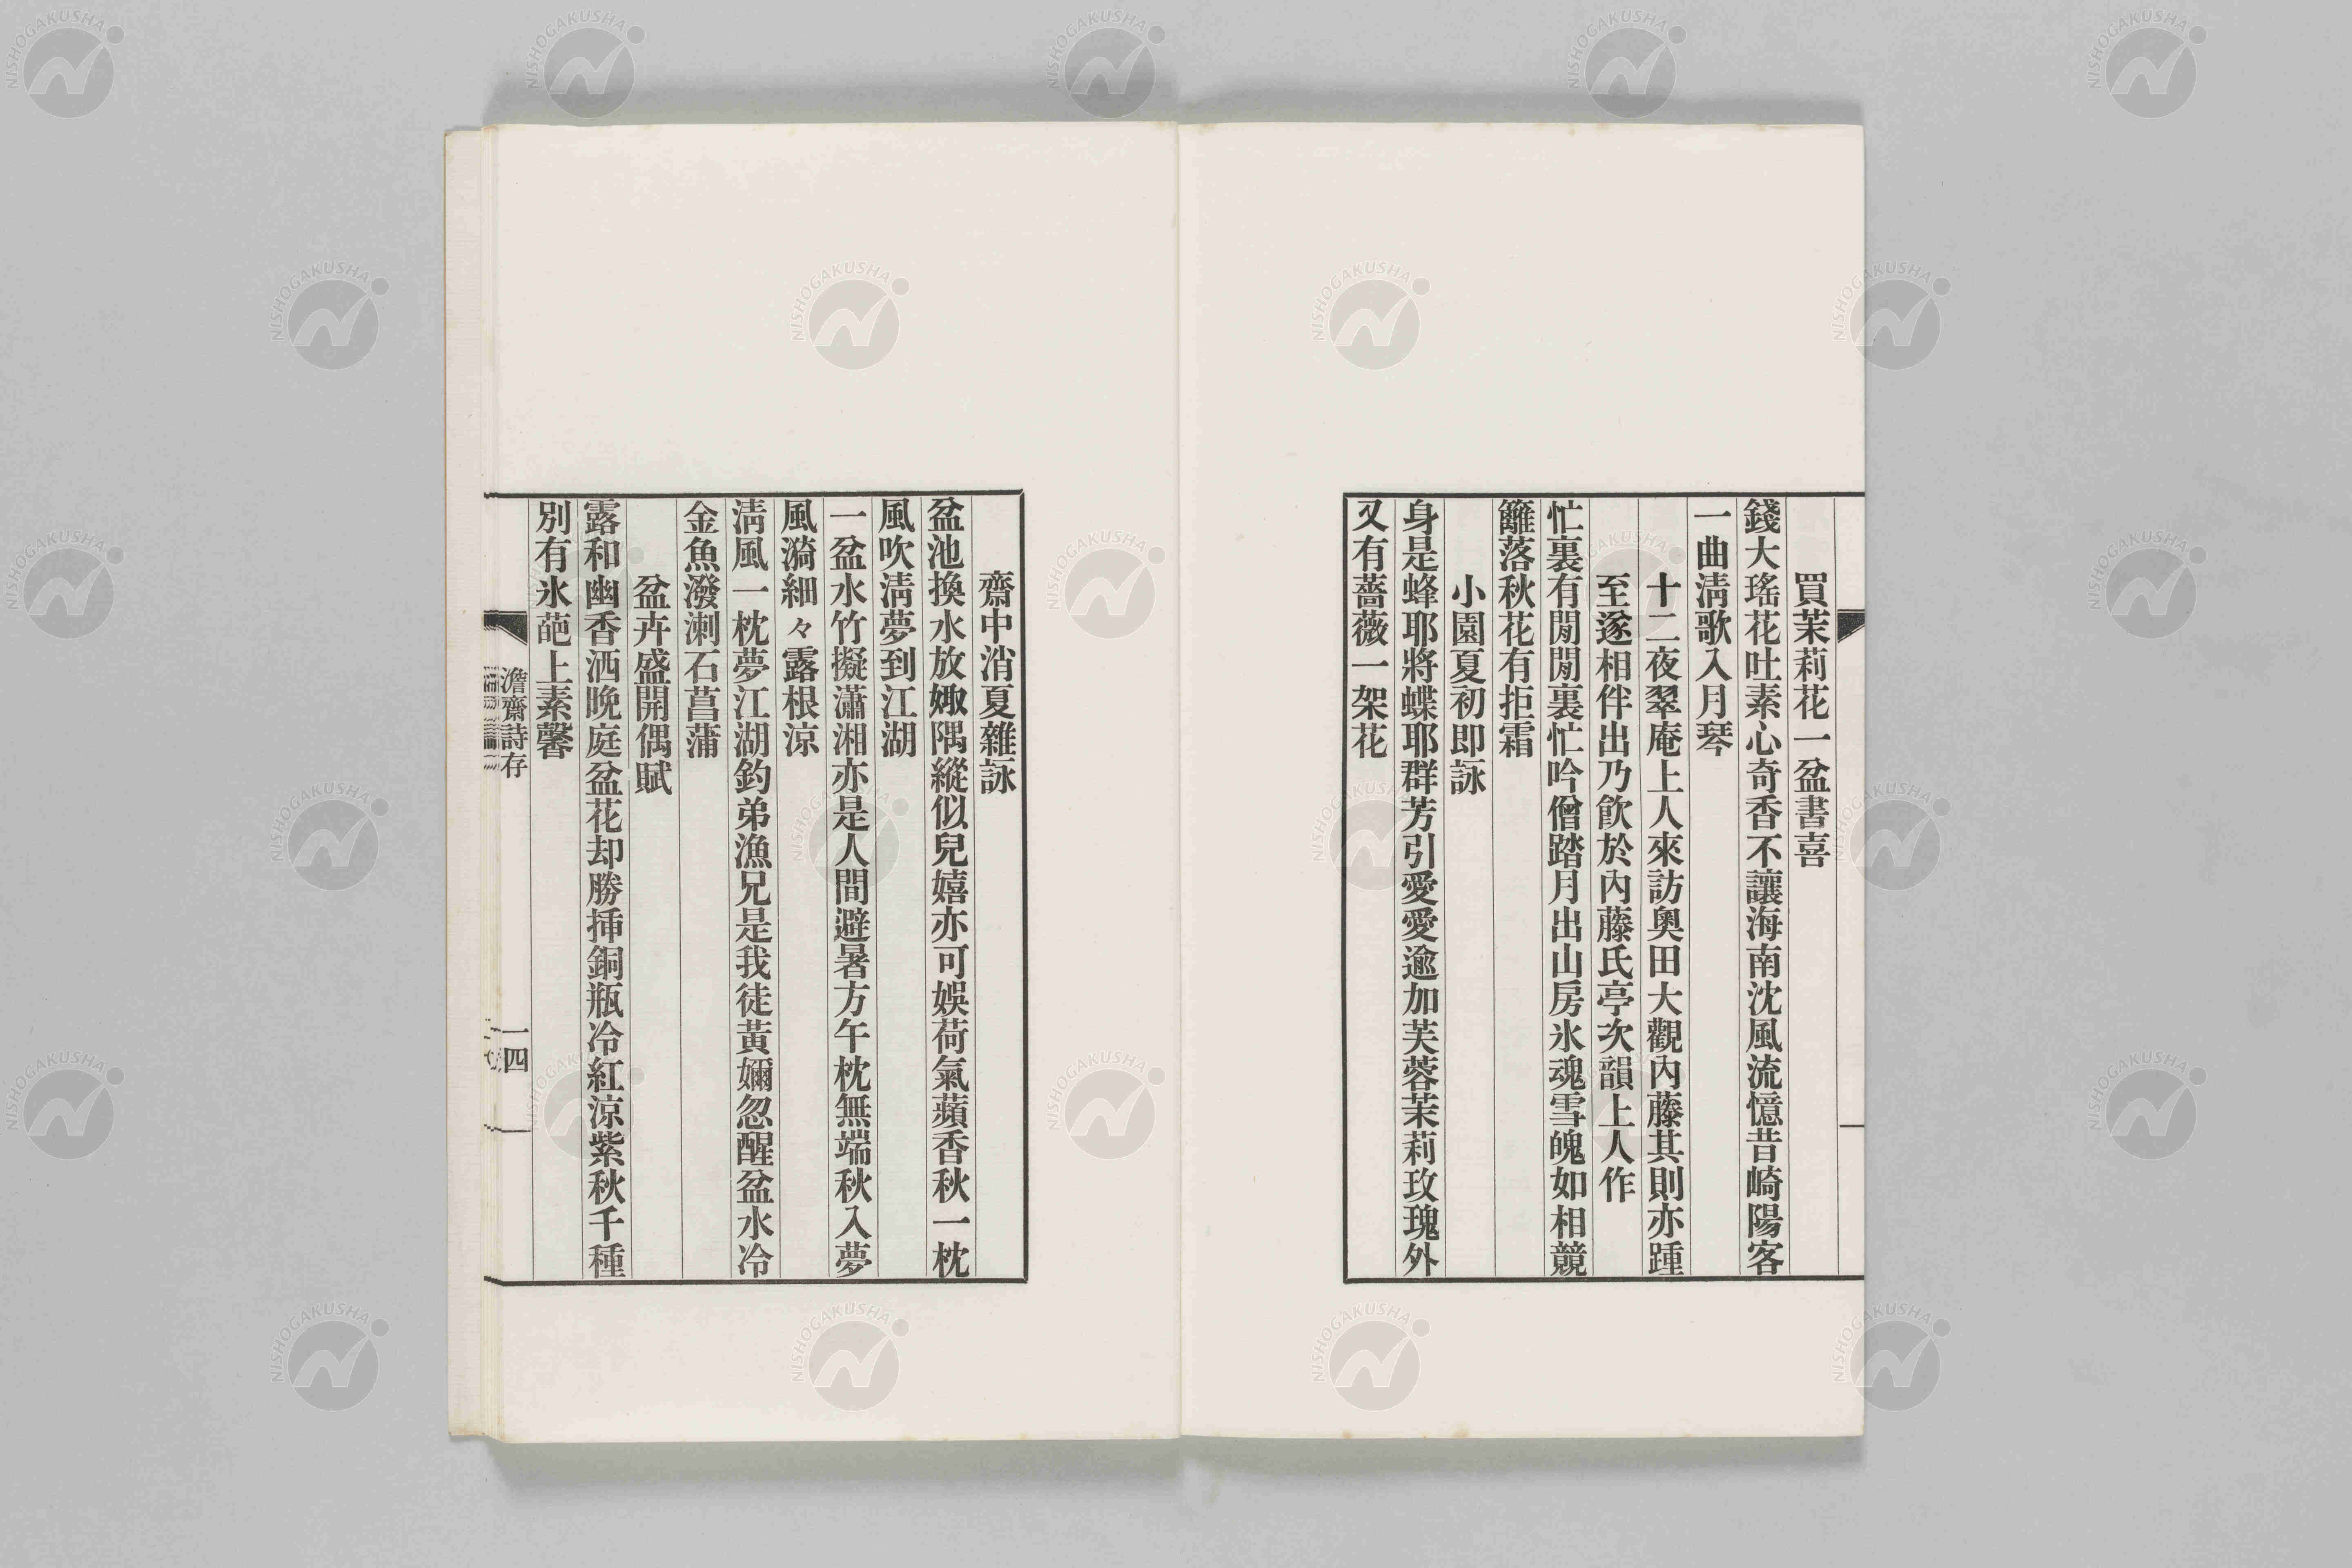 買茉莉花一盆書喜
錢大瑤花吐素心奇香不讓海南沈風流憶昔崎陽客
一曲淸歌入月琴
十二夜翠庵上人來訪奥田大觀內藤其則亦踵
至遂相伴出乃飮於內藤氏亭次韻上人作
忙裏有閒閒裏忙吟僧踏月出山房氷魂雪魄如相競
籬落秋花有拒霜
小園夏初即詠
身是蜂耶將蝶耶群芳引愛愛逾加芙蓉茉莉玫瑰外
又有薔薇一架花
齋中消夏雜詠
盆池換水放娵隅縱似兒嬉亦可娛荷氣蘋香秋一枕
風吹淸夢到江湖
一盆水竹擬瀟湘亦是人間避暑方午枕無端秋入夢
風漪細々露根涼
淸風一枕夢江湖釣弟漁兄是我徒黃嬭忽醒盆水冷
金魚潑溂石菖蒲
盆卉盛開偶賦
露和幽香洒晩庭盆花却勝揷銅瓶冷紅涼紫秋千種
別有氷葩上素馨
澹齋詩存
一四
NISHOGAKUSHA